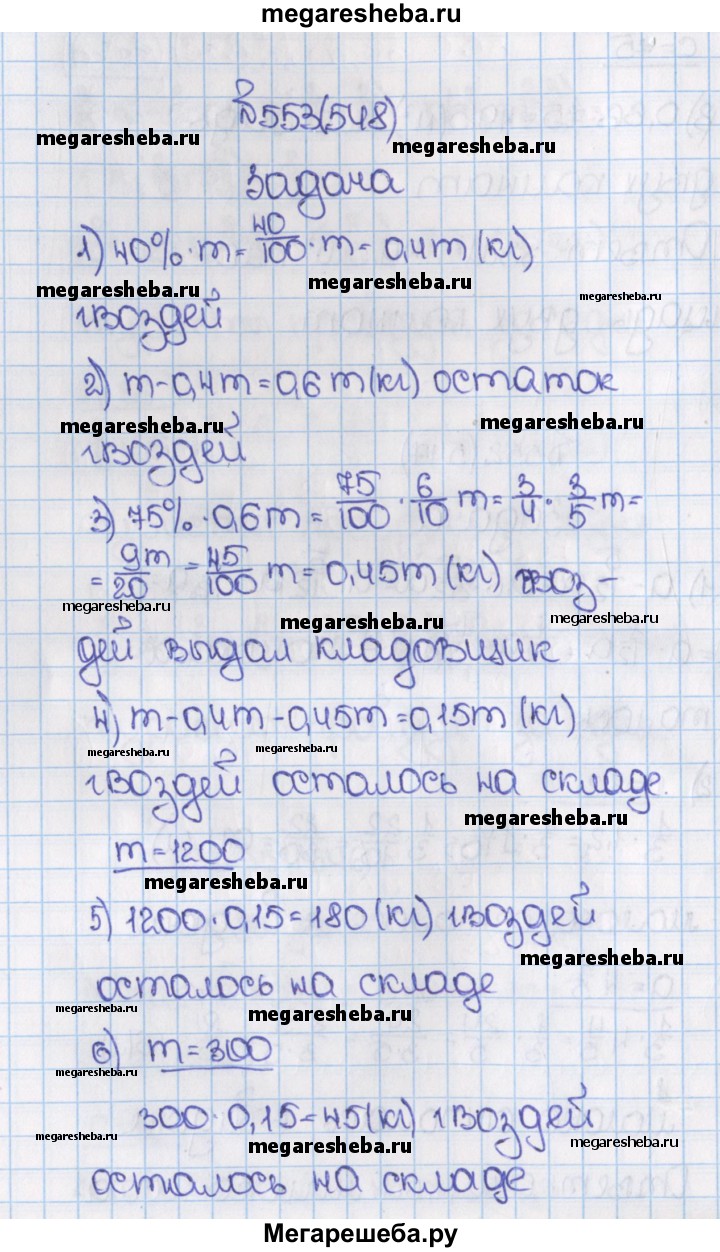 megaresheba.ru
№553(548)
megaresheba.ru
megaresheba.ru
Задача
1) 40%·m=40/100·m=0,4m (кг)
megaresheba.ru
megaresheba.ru
megaresheba.ru
гвоздей
2) m-0,4m=0,6m(кг) остаток
megaresheba.ru
megaresheba.ru
гвоздей
3) 75%·0,6m=75/100·6/10m=3/4·3/5m=
=9m/20=45/100m=0,45m(кг) гвоз-
megaresheba.ru
megaresheba.ru
megaresheba.ru
дей выдал кладовщик
4) m-0,4m-0,45m=0,15m (кг)
megaresheba.ru
megaresheba.ru
гвоздей осталось на складе.
megaresheba.ru
m=1200
megaresheba.ru
5) 1200·0,15=180(кг) гвоздей
megaresheba.ru
осталось на складе
megaresheba.ru
megaresheba.ru
6) m=300
megaresheba.ru
300·0,15=45(кг) гвоздей
megaresheba.ru
megaresheba.ru
megaresheba.ru
осталось на складе
Мегарешеба.ру